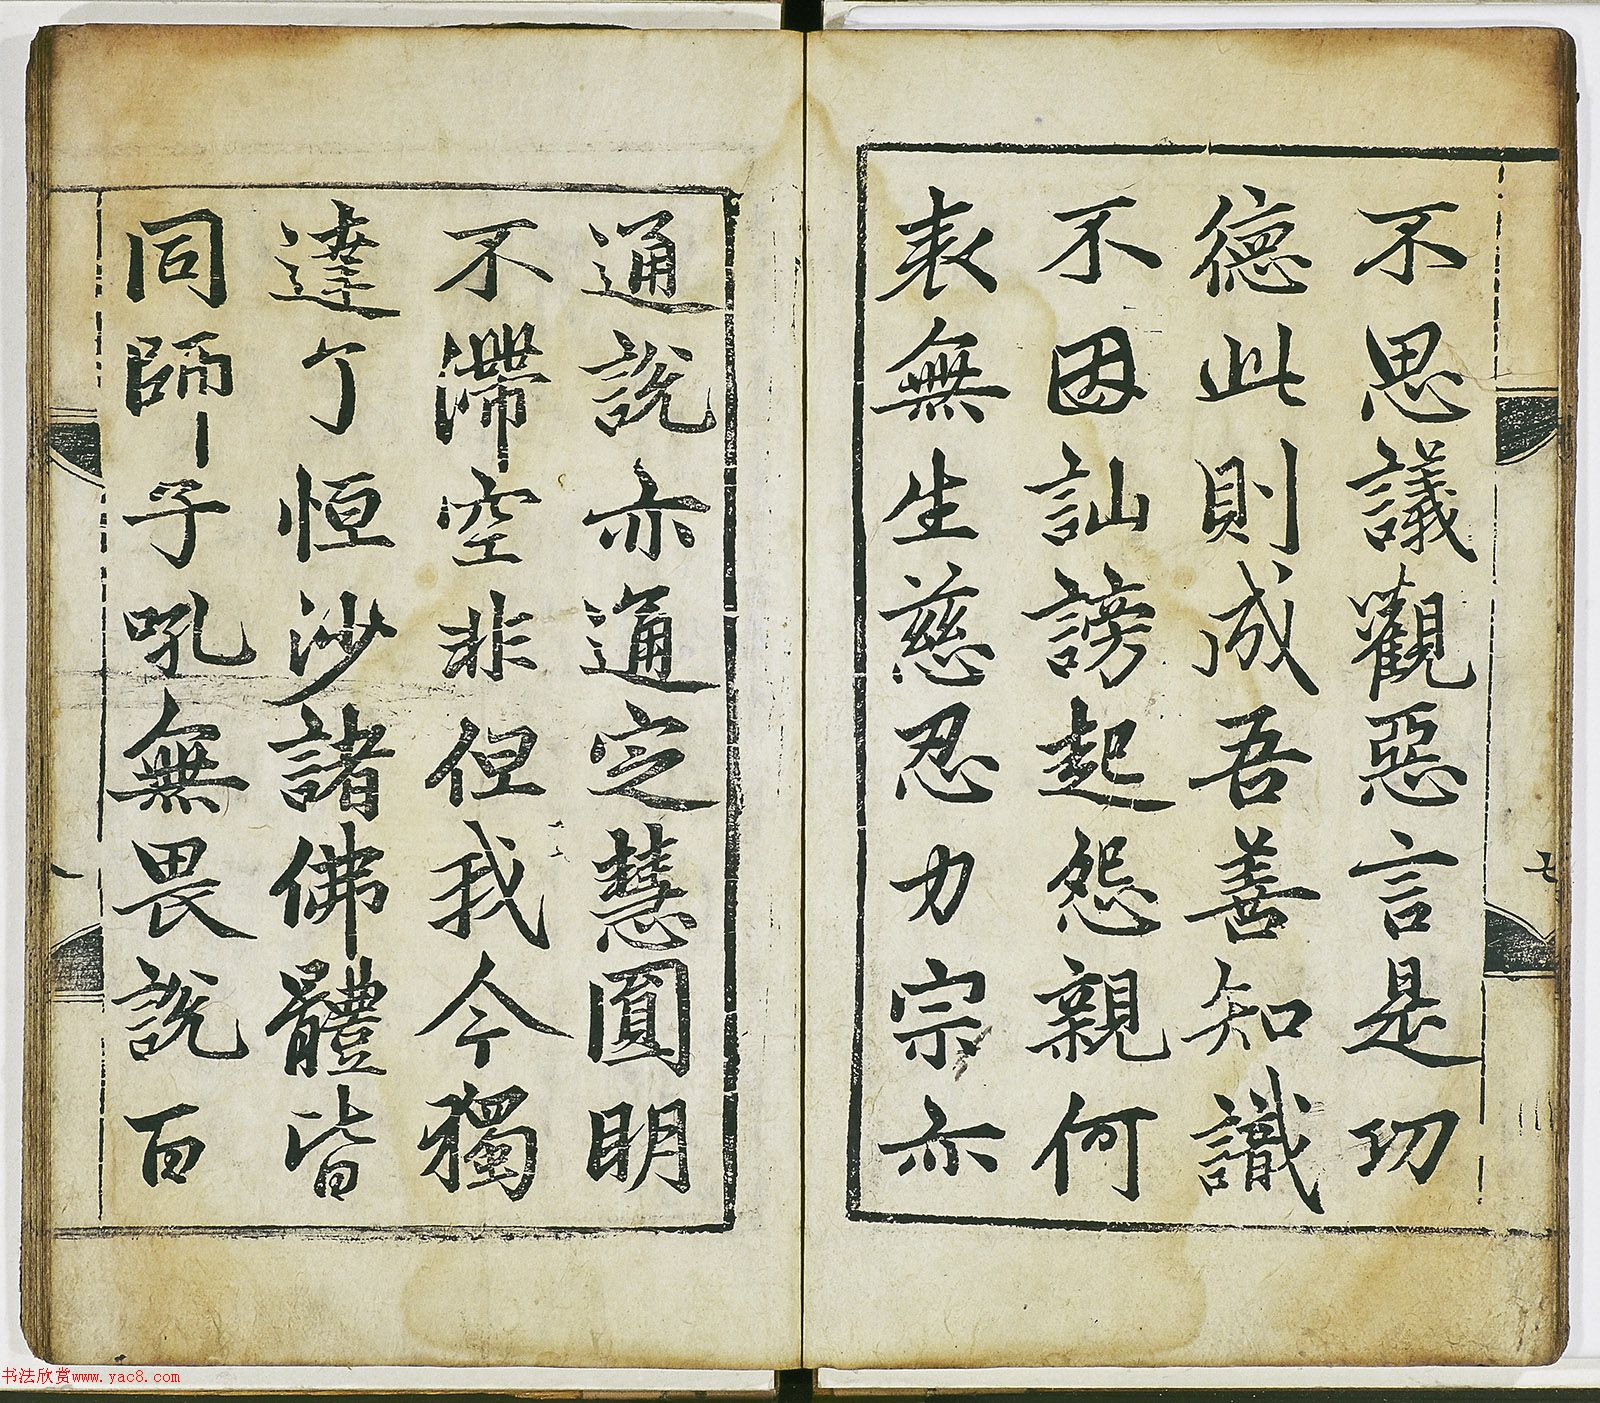 不思議觀惡言是功
德此則成吾善知識
不因訕謗起怨親何
表無生慈忍力宗亦
通說亦通定慧圓明
不滯空非但我今獨
達了恒沙諸佛體皆
同師子吼無畏說百
七
八
书法欣赏www.yac8.com